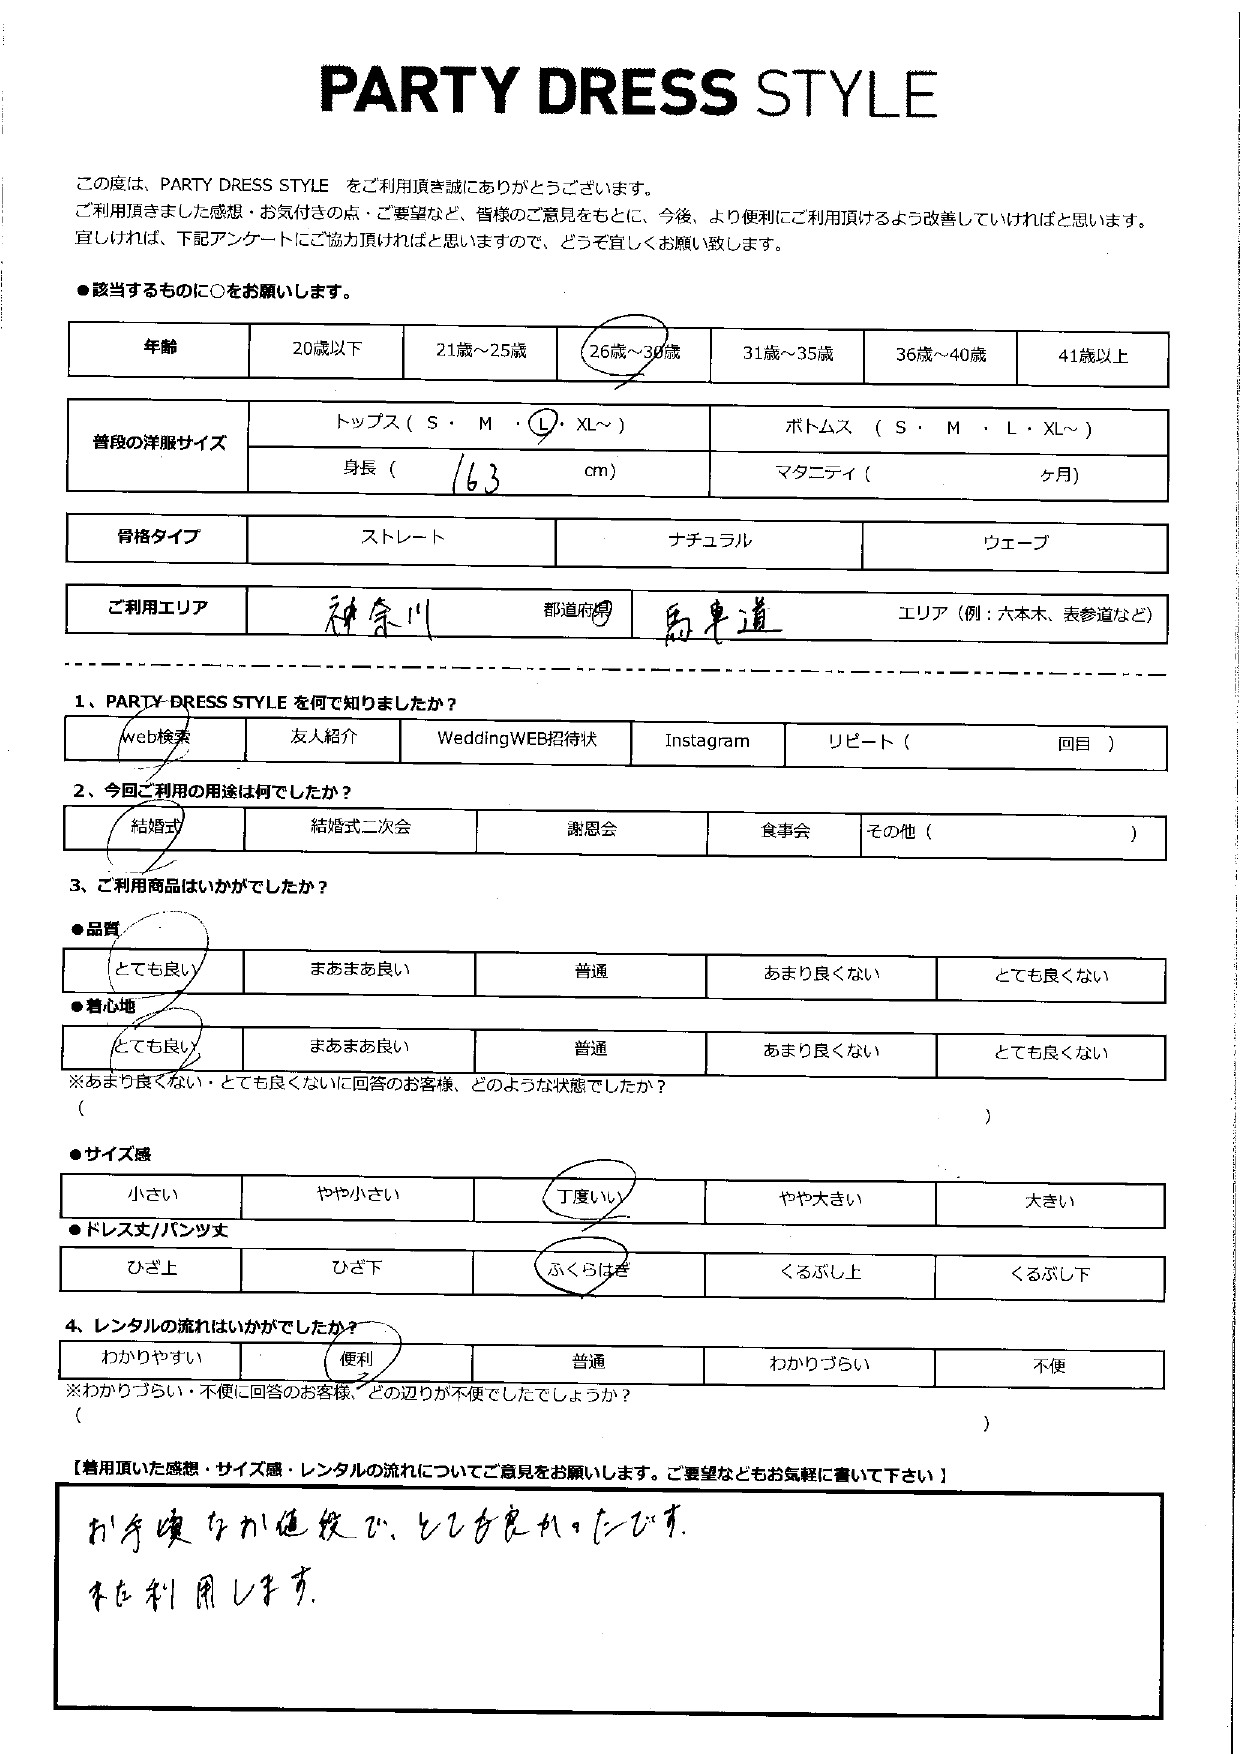 PARTY DRESS STYLE
この度は、PARTY DRESS STYLE をご利用頂き誠にありがとうございます。
ご利用頂きました感想・お気付きの点・ご要望など、皆様のご意見をもとに、今後、より便利にご利用頂けるよう改善していければと思います。
宜しければ、下記アンケートにご協力頂ければと思いますので、どうぞ宜しくお願い致します。
●該当するものに○をお願いします。
年齢 20歳以下 21歳～25歳 26歳～30歳 31歳～35歳 36歳～40歳 41歳以上
普段の洋服サイズ
トップス ( S ・ M ・ L ・ XL～ ) ボトムス ( S ・ M ・ L ・ XL～ )
身長 ( 163 cm) マタニティ ( ヶ月)
骨格タイプ ストレート ナチュラル ウェーブ
ご利用エリア 神奈川 都道府県 馬車道 エリア（例：六本木、表参道など）
1、PARTY DRESS STYLE を何で知りましたか？
web検索 友人紹介 WeddingWEB招待状 Instagram リピート ( 回目 )
2、今回ご利用の用途は何でしたか？
結婚式 結婚式二次会 謝恩会 食事会 その他 ( )
3、ご利用商品はいかがでしたか？
●品質
とても良い まあまあ良い 普通 あまり良くない とても良くない
●着心地
とても良い まあまあ良い 普通 あまり良くない とても良くない
※あまり良くない・とても良くないに回答のお客様、どのような状態でしたか？
( )
●サイズ感
小さい やや小さい 丁度いい やや大きい 大きい
●ドレス丈/パンツ丈
ひざ上 ひざ下 ふくらはぎ くるぶし上 くるぶし下
4、レンタルの流れはいかがでしたか？
わかりやすい 便利 普通 わかりづらい 不便
※わかりづらい・不便に回答のお客様、どの辺りが不便でしたでしょうか？
( )
【着用頂いた感想・サイズ感・レンタルの流れについてご意見をお願いします。ご要望などもお気軽に書いて下さい】
お手頃なお値段で、とても良かったです.
また利用します.